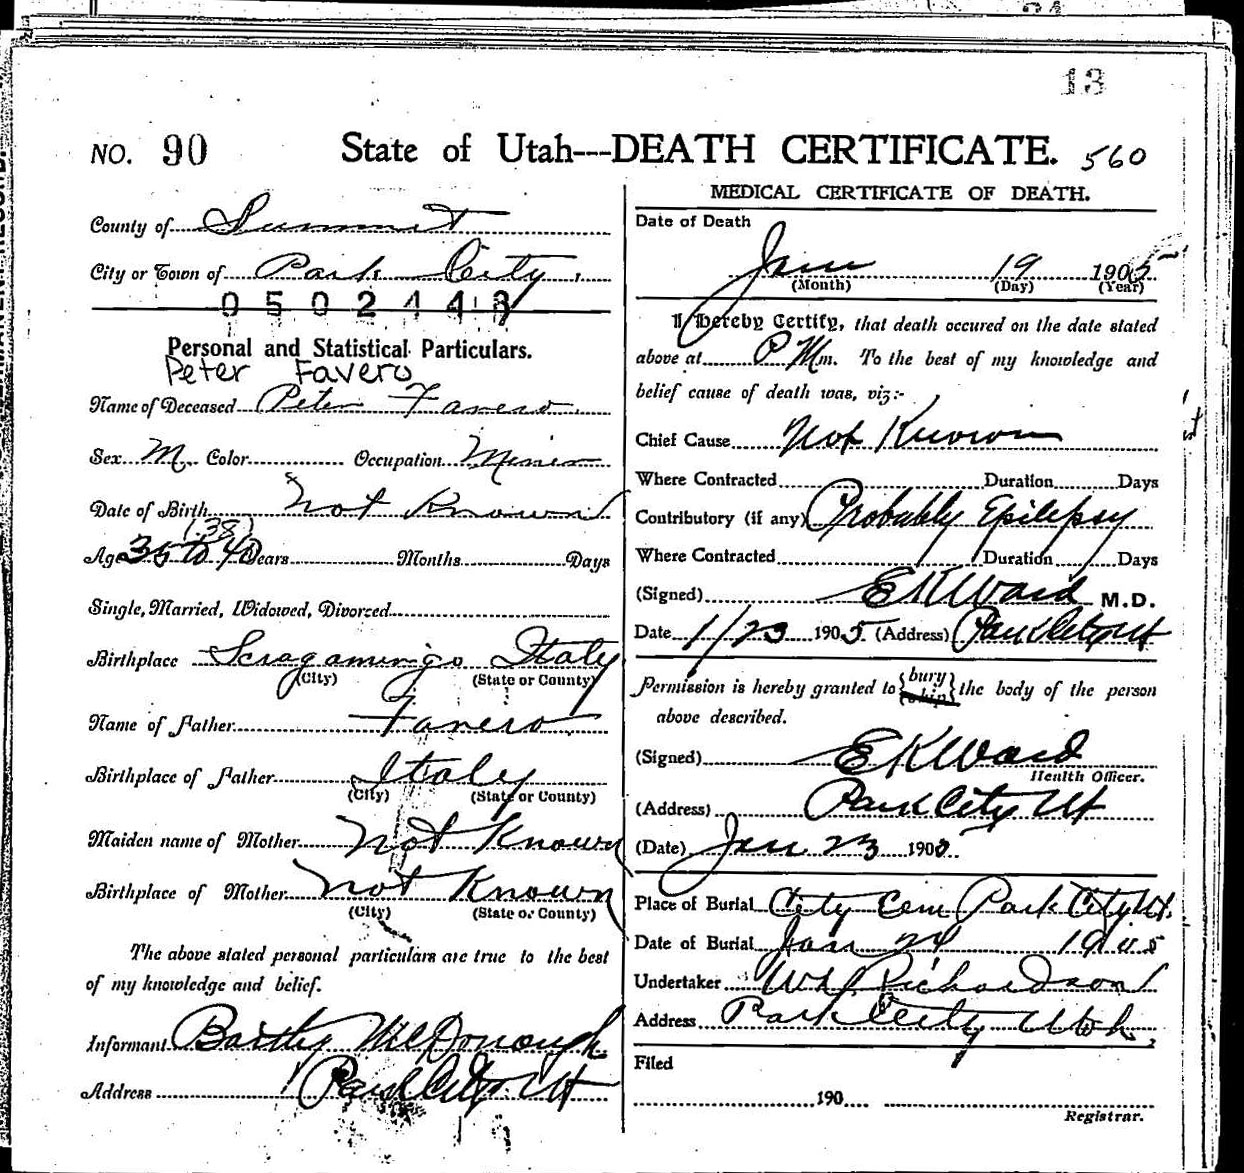 13
NO. 90 State of Utah---DEATH CERTIFICATE. 560
County of Summit
City or Town of Park City,
0502448
Personal and Statistical Particulars.
Peter Favero
Name of Deceased Peter Favero
Sex M Color Occupation Miner
Date of Birth Not Known
(38)
Age 35 to 40 Years Months Days
Single, Married, Widowed, Divorced
Birthplace Italy
(City) (State or County)
Name of Father Favero
Birthplace of Father Italy
(City) (State or County)
Maiden name of Mother Not Known
Birthplace of Mother Not Known
(City) (State or County)
The above stated personal particulars are true to the best
of my knowledge and belief.
Informant Bartley McDonough
Address Park City Ut
MEDICAL CERTIFICATE OF DEATH.
Date of Death
Jan 19 1905
(Month) (Day) (Year)
I Hereby Certify, that death occured on the date stated
above at P Mm. To the best of my knowledge and
belief cause of death was, viz:-
Chief Cause Not Known
Where Contracted Duration Days
Contributory (if any) Probably Epilepsy
Where Contracted Duration Days
(Signed) EKWard M.D.
Date 1/23 1905 (Address) Park City Ut
Permission is hereby granted to {bury ship} the body of the person
above described.
(Signed) EKWard
Health Officer.
(Address) Park City Ut
(Date) Jan 23 1905
Place of Burial City Cem Park City Ut.
Date of Burial Jan 24 1905
Undertaker Richardson
Address Park City Utah,
Filed
190
Registrar.